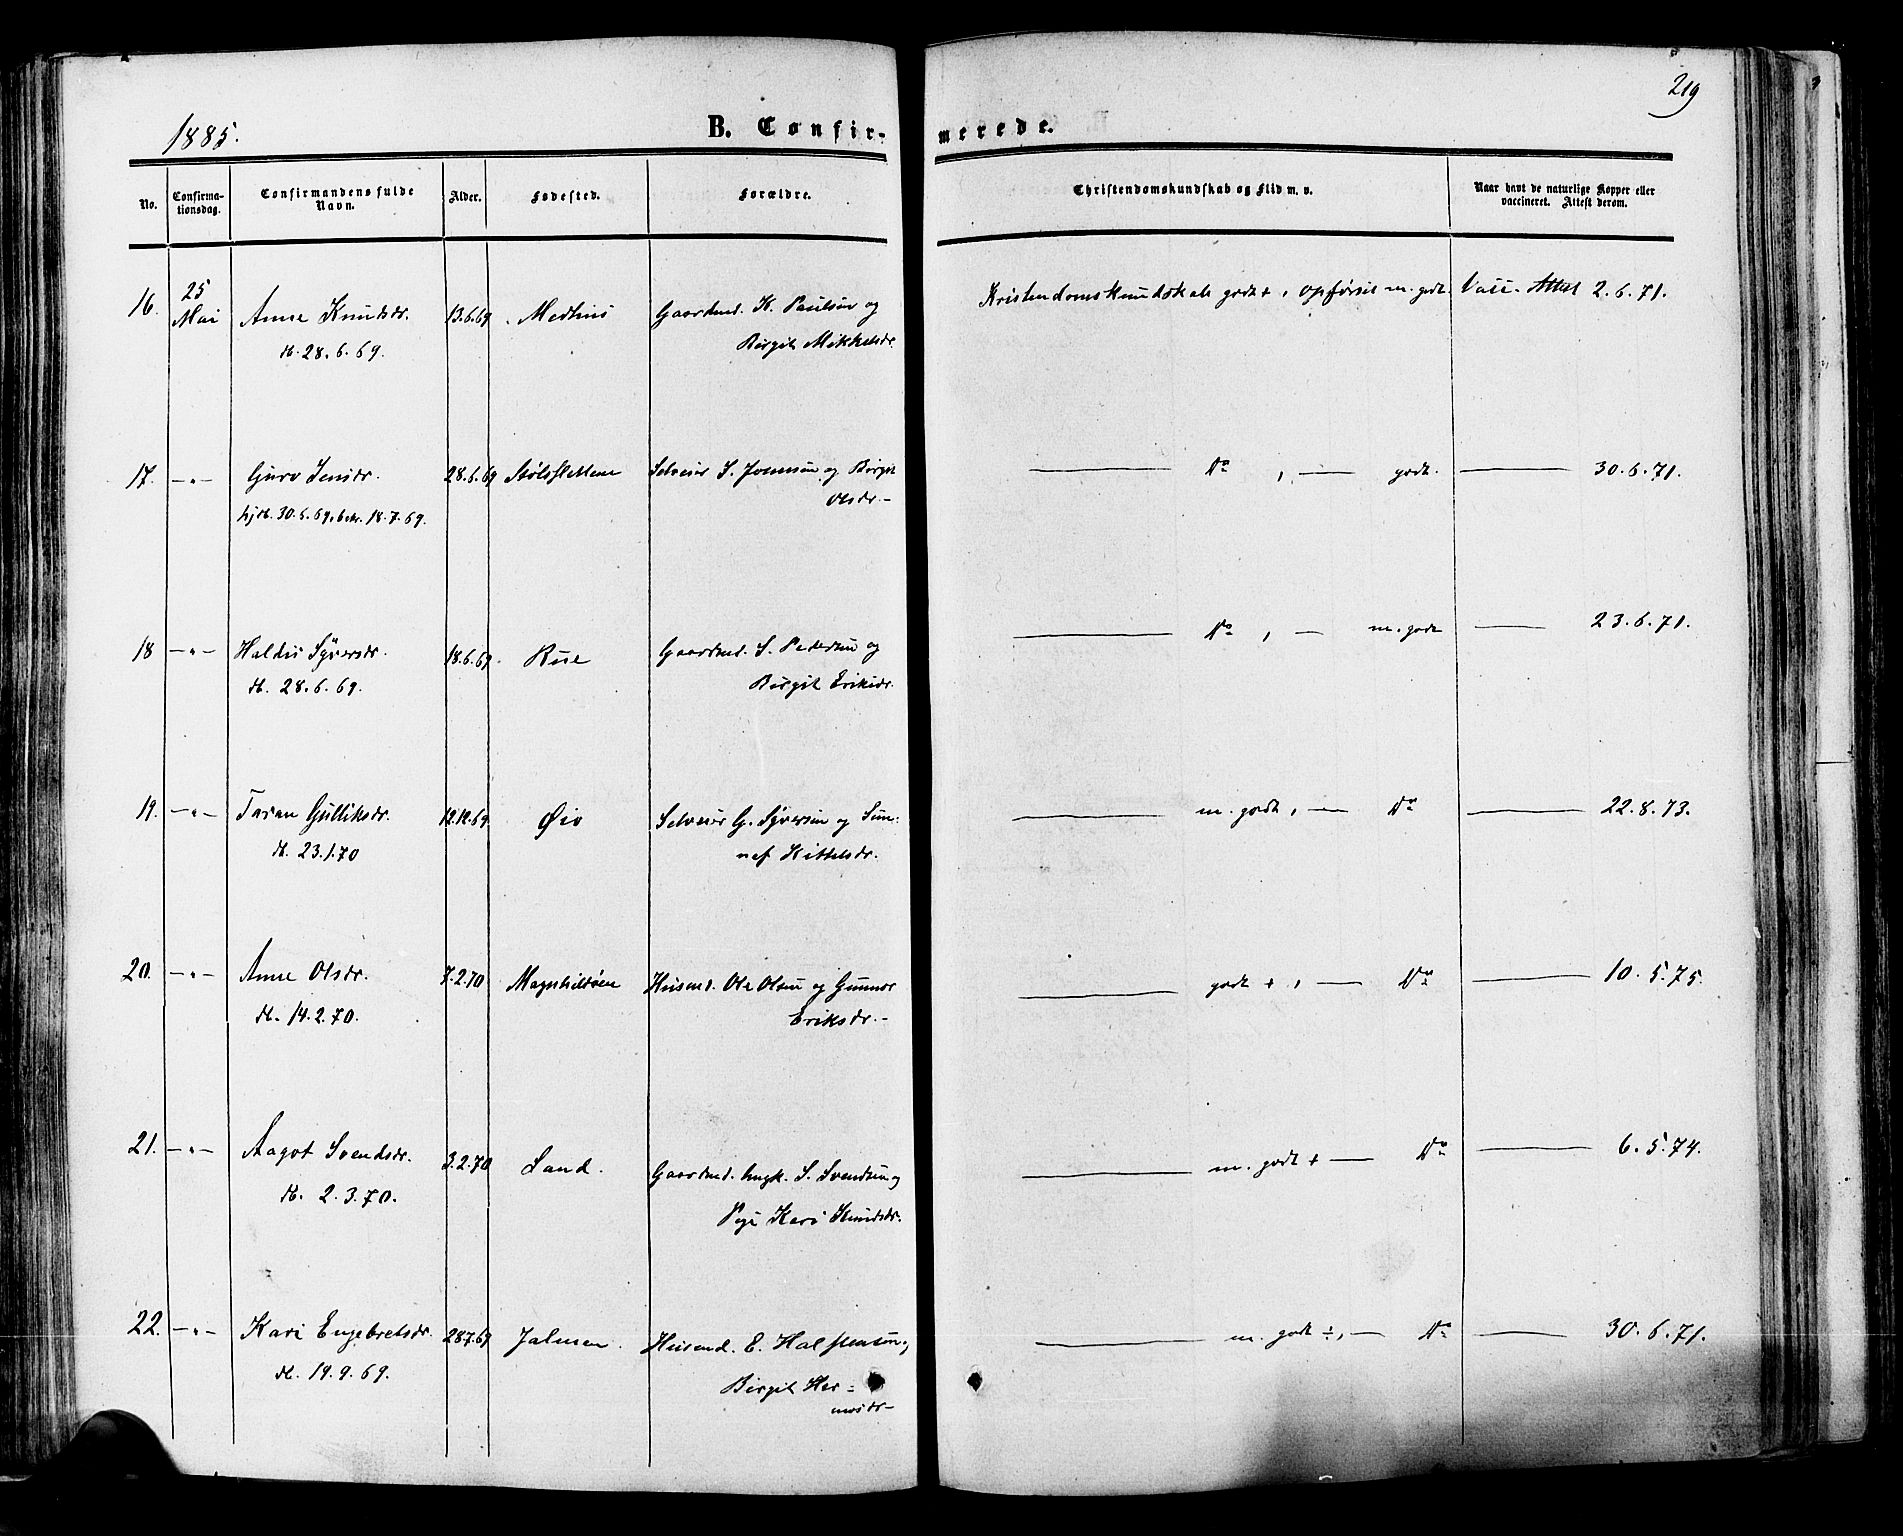 219
1885.
B. Confir-
merede.
No.
Confirma-
tionsdag.
Confirmandens fulde
Navn.
Alder.
Fødested.
Forældre.
Christendomskundskab og Flid m. v.
Naar havt de naturlige Kopper eller
vaccineret. Attest derom.
16. 25 Mai Anne Knudsdr. 13.6.69 Gaardmd. K. Paulsen og Kristendomskundskab godt +, opførsel m. godt. Vacc. Attest 2.6.71.
d. 28.6.69. Birgit Mikkelsdr.
17. -"- Guro Jensdr. 28.6.69 Stølsslettene Selveier J. Jonnsen og Birgit Do, — godt. — 30.6.71.
hjd. 30.6.69, bekr. 18.7.69. Olsdr.-
18 -"- Haldis Syversdr. 18.6.69 Rue Gaardmd. S. Pedersen og Do, — m. godt — 23.6.71.
d. 28.6.69. Birgit Eriksdr.
19. -"- Taran Gulliksdr. 12.12.69 Øio Selveier G. Syversen og Sun- m. godt, — Do — 22.8.73.
d. 23.1.70 nef Kittelsdr.
20. -"- Anne Olsdr. 7.2.70 Magnhildøen Husmd. Ole Olsen og Gunnor godt +, — Do — 10.5.75.
d. 14.2.70. Eriksdr.-
21. -"- Aagot Svendsdr. 3.2.70 Sand. Gaardmd. Ungk. S. Svendsen og m. godt + — Do — 6.5.74.
d. 2.3.70. Pige Kari Knudsdr.
22. -"- Kari Engebretsdr. 28.7.69 Jalmen. Husmd. E. Halstensen og m. godt ÷, — Do — 30.6.71.
d. 19.9.69. Birgit Her-
mosdr-